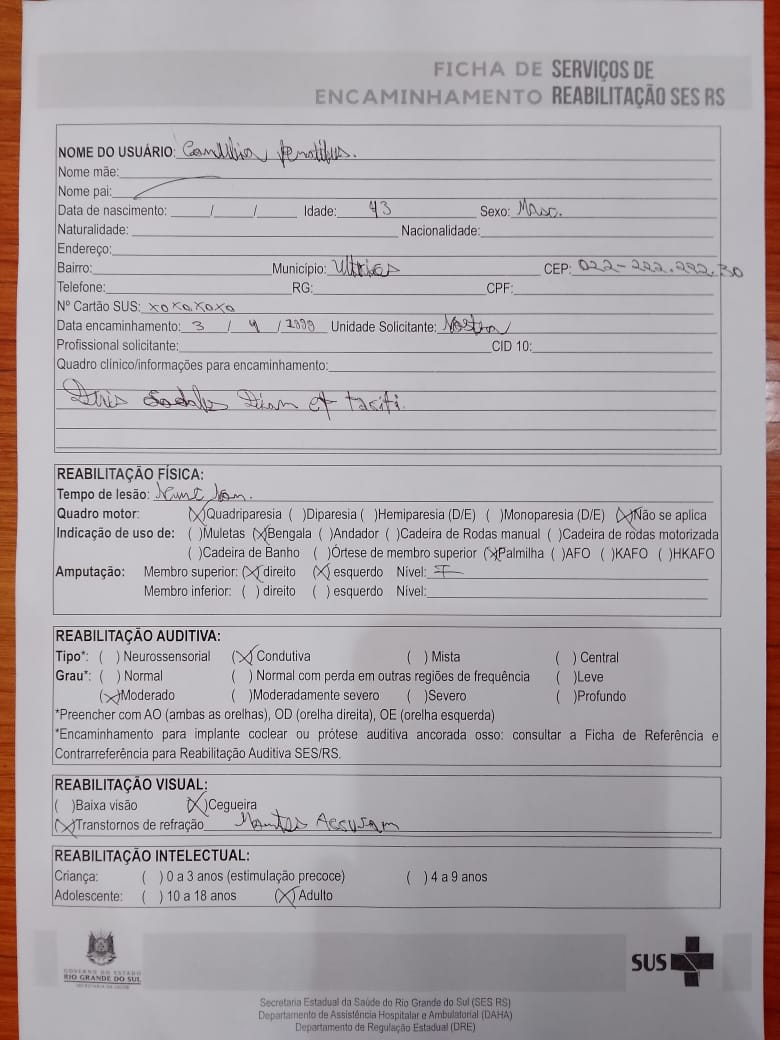 FICHA DE SERVIÇOS DE
ENCAMINHAMENTO REABILITAÇÃO SES RS
NOME DO USUÁRIO:
Nome mãe:
Nome pai:
Data de nascimento: / / Idade: 43 Sexo: Masc.
Naturalidade: Nacionalidade:
Endereço:
Bairro: Município: Ultrices CEP: 022-222.222.30
Telefone: RG: CPF:
Nº Cartão SUS: xoxo.xoxo
Data encaminhamento: 3 / 9 / Unidade Solicitante: Nostra
Profissional solicitante: CID 10:
Quadro clínico/informações para encaminhamento:
Duis Sodales Diam et taciti.
REABILITAÇÃO FÍSICA:
Tempo de lesão: Nunc
Quadro motor: (X)Quadriparesia ( )Diparesia ( )Hemiparesia (D/E) ( )Monoparesia (D/E) (X)Não se aplica
Indicação de uso de: ( )Muletas (X)Bengala ( )Andador ( )Cadeira de Rodas manual ( )Cadeira de rodas motorizada
( )Cadeira de Banho ( )Órtese de membro superior (X)Palmilha ( )AFO ( )KAFO ( )HKAFO
Amputação: Membro superior: (X) direito (X) esquerdo Nível: I
Membro inferior: ( ) direito ( ) esquerdo Nível:
REABILITAÇÃO AUDITIVA:
Tipo*: ( ) Neurossensorial (X)Condutiva ( ) Mista ( ) Central
Grau*: ( ) Normal ( ) Normal com perda em outras regiões de frequência ( )Leve
(X)Moderado ( )Moderadamente severo ( )Severo ( )Profundo
*Preencher com AO (ambas as orelhas), OD (orelha direita), OE (orelha esquerda)
*Encaminhamento para implante coclear ou prótese auditiva ancorada osso: consultar a Ficha de Referência e
Contrarreferência para Reabilitação Auditiva SES/RS.
REABILITAÇÃO VISUAL:
( )Baixa visão (X)Cegueira
(X)Transtornos de refração Montes Accusam
REABILITAÇÃO INTELECTUAL:
Criança: ( ) 0 a 3 anos (estimulação precoce) ( ) 4 a 9 anos
Adolescente: ( ) 10 a 18 anos (X) Adulto
GOVERNO DO ESTADO
RIO GRANDE DO SUL
SECRETARIA DA SAÚDE
SUS
Secretaria Estadual da Saúde do Rio Grande do Sul (SES RS)
Departamento de Assistência Hospitalar e Ambulatorial (DAHA)
Departamento de Regulação Estadual (DRE)